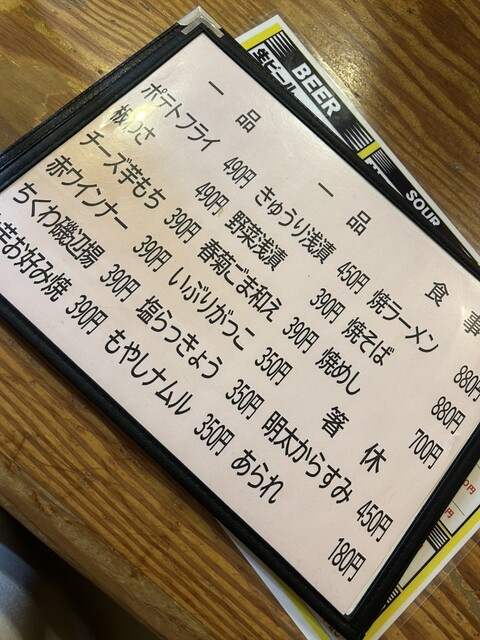 一品
ポテトフライ 490円
板わさ 490円
チーズ芋もち 390円
赤ウインナー 390円
ちくわ磯辺揚 390円
お好み焼 390円
一品
きゅうり浅漬 450円
野菜浅漬 390円
春菊ごま和え 390円
いぶりがっこ 350円
塩らっきょう 350円
もやしナムル 350円
食事
焼ラーメン 880円
焼そば 880円
焼めし 700円
箸休
明太からすみ 450円
あられ 180円
BEER
生ビール
SOUR